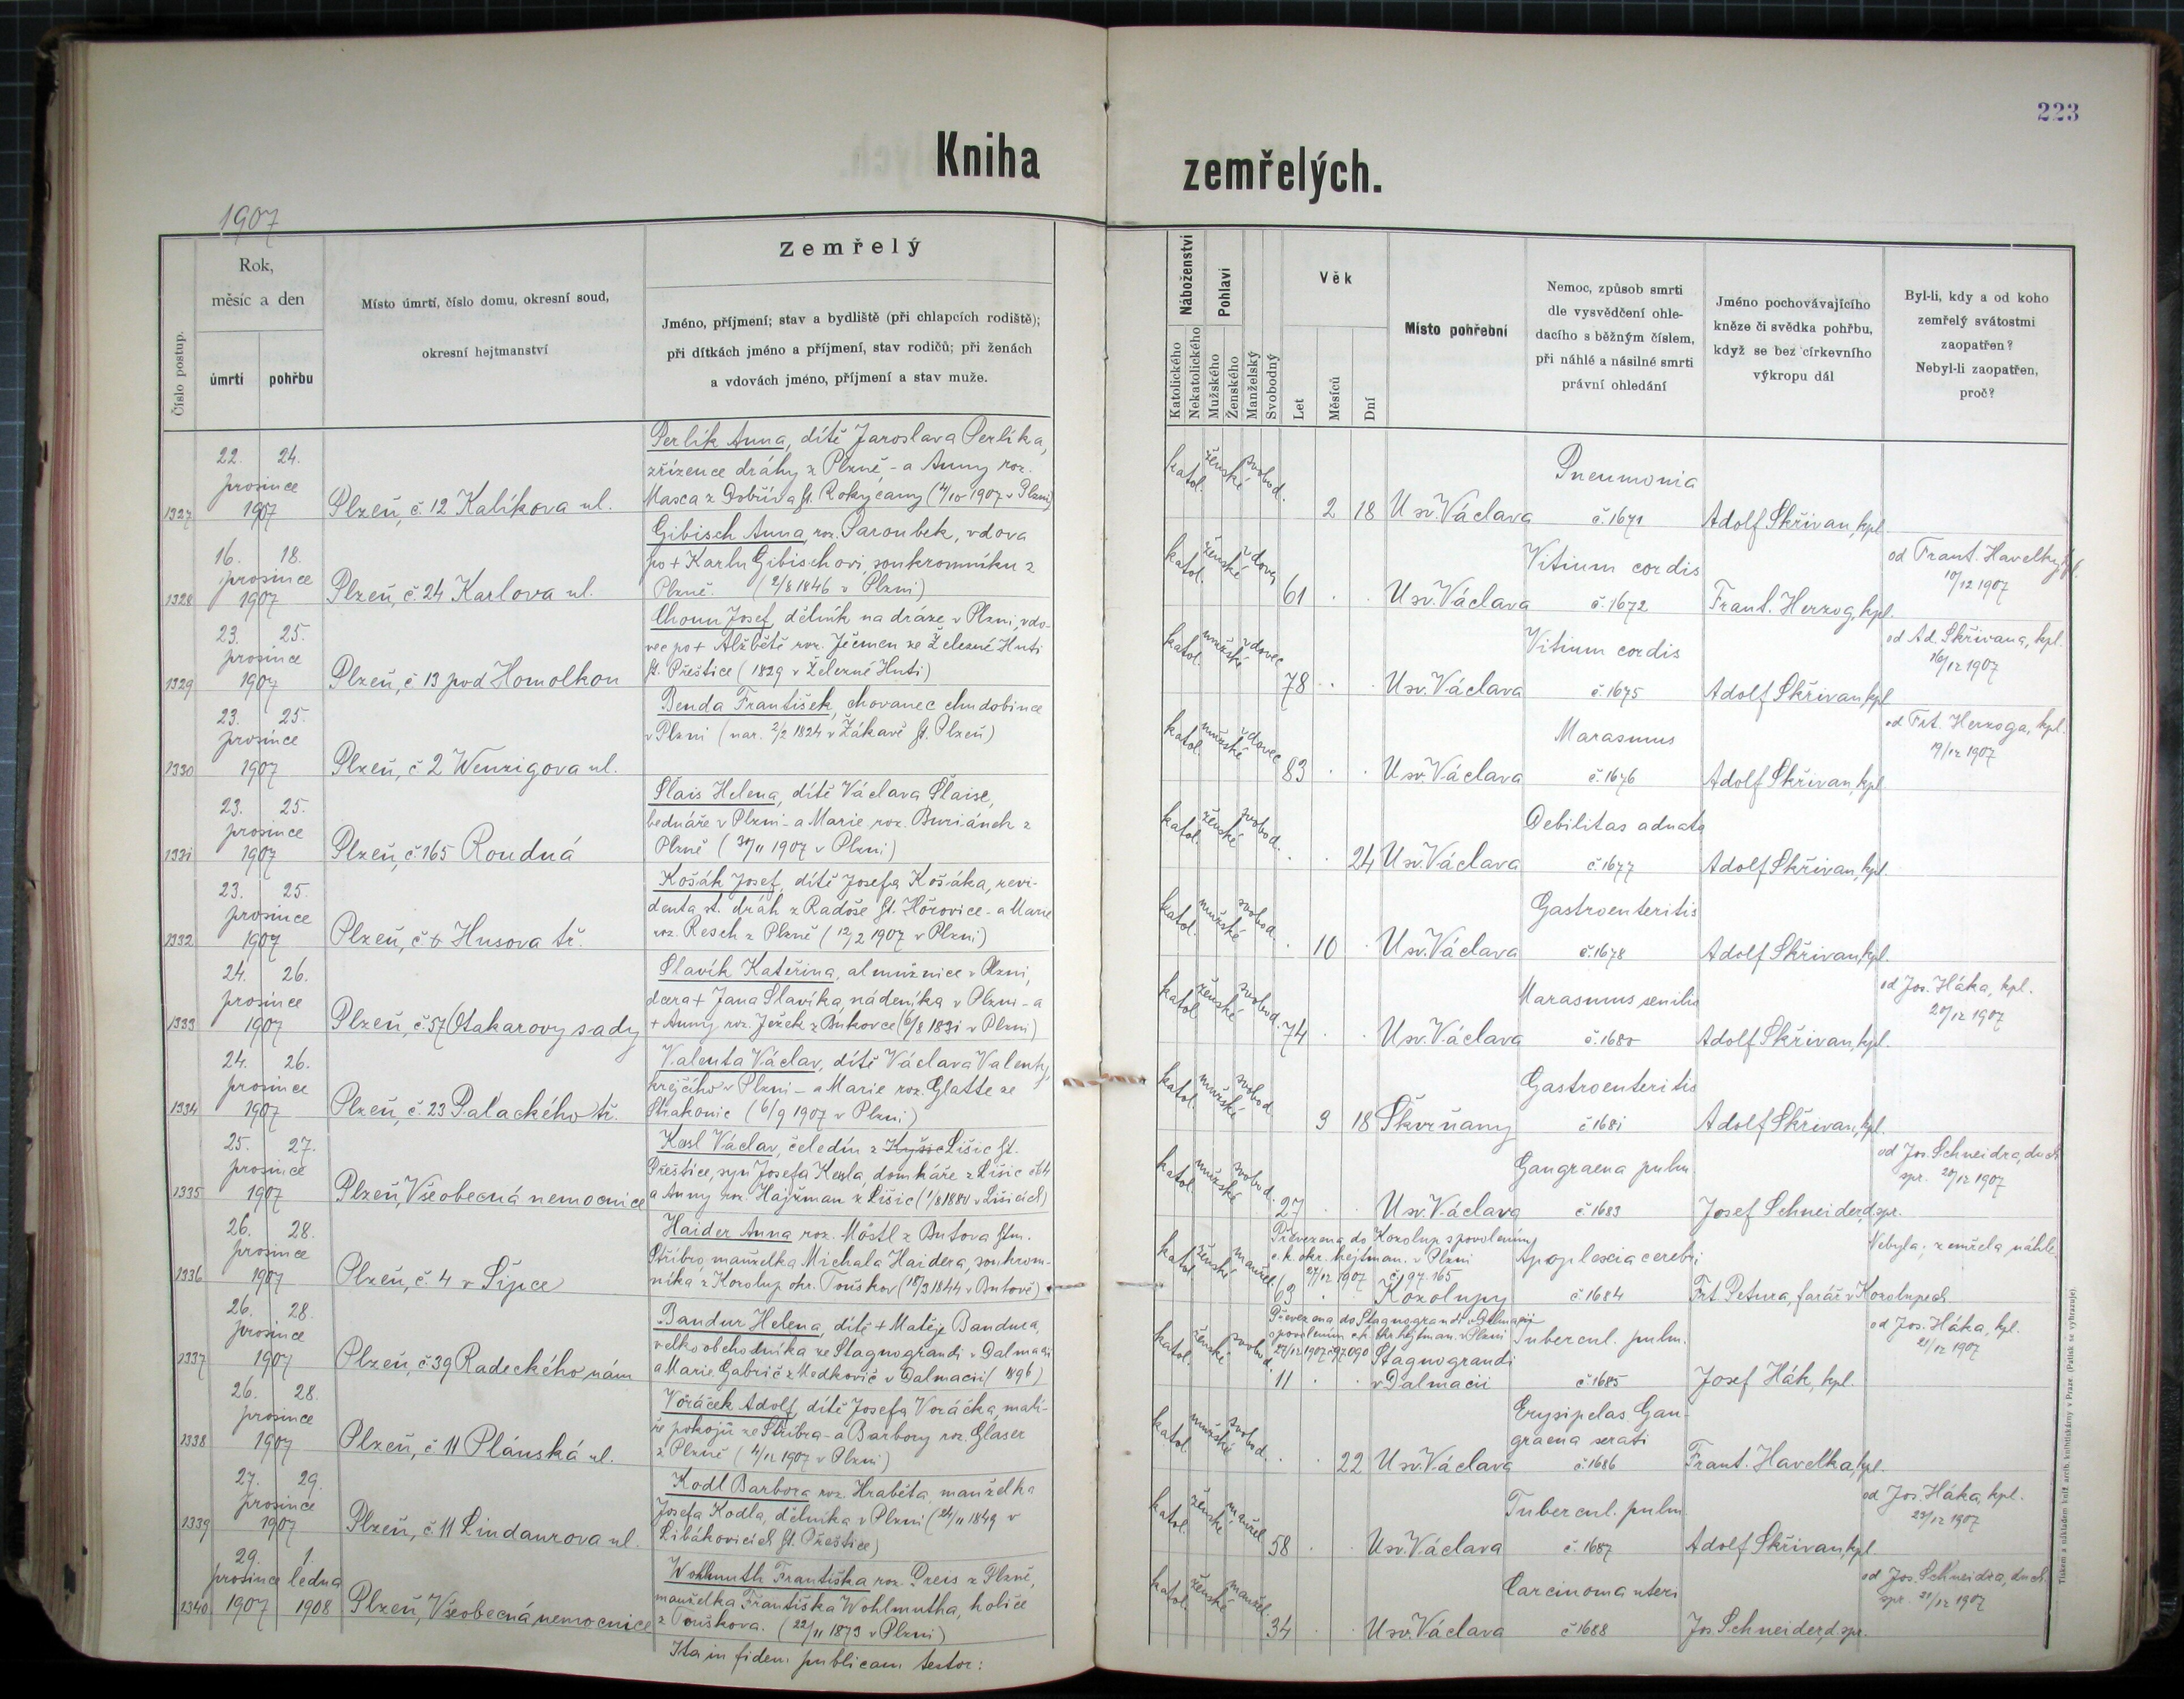 223
Kniha zemřelých.
1907
Číslo postup.
Rok,
měsíc a den
úmrtí
pohřbu
Místo úmrtí, číslo domu, okresní soud,
okresní hejtmanství
Zemřelý
Jméno, příjmení; stav a bydliště (při chlapcích rodiště);
při dítkách jméno a příjmení, stav rodičů; při ženách
a vdovách jméno, příjmení a stav muže.
Náboženství
Katolického
Nekatolického
Pohlaví
Mužského
Ženského
Manželský
Svobodný
Věk
Let
Měsíců
Dní
Místo pohřební
Nemoc, způsob smrti
dle vysvědčení ohle-
dacího s běžným číslem,
při náhlé a násilné smrti
právní ohledání
Jméno pochovávajícího
kněze či svědka pohřbu,
když se bez církevního
výkropu dál
Byl-li, kdy a od koho
zemřelý svátostmi
zaopatřen?
Nebyl-li zaopatřen,
proč?
1327
22. 24.
prosince
1907
Plzeň, č. 12 Kalíkova ul.
Perlík Anna, dítě Jaroslava Perlíka,
zřízence dráhy z Plzně - a Anny roz.
Masca z Dobříva ht. Rokycany (4/10 1907 v Plzni)
katol. ženské svobod.
2 18
U sv. Václava
Pneumonia
č. 1671
Adolf Skřivan, kpl.
1328
16. 18.
prosince
1907
Plzeň, č. 24 Karlova ul.
Gibisch Anna, roz. Paroubek, vdova
po + Karlu Gibischovi, soukromníku z
Plzně. (2/8 1846 v Plzni)
katol. ženské vdova
61
U sv. Václava
Vitium cordis
č. 1672
Frant. Herzog, kpl.
od Frant. Havelky, kpl.
10/12 1907
1329
23. 25.
prosince
1907
Plzeň, č 13 pod Homolkou
Josef, dělník na dráze v Plzni, vdo-
vec po + Alžbětě roz. Ječmen ze Železné Huti
ht. Přeštice (1829 v Železné Huti)
katol. mužské vdovec
78
U sv. Václava
Vitium cordis
č. 1675
Adolf Skřivan, kpl
od Ad. Skřivana, kpl.
16/12 1907
1330
23. 25.
prosince
1907
Plzeň, č 2 Wenzigova ul.
Benda František, chovanec chudobince
v Plzni (nar. 2/2 1824 v Žákavě ht. Plzeň)
katol. mužské vdovec
83
U sv. Václava
Marasmus
č. 1676
Adolf Skřivan, kpl
od Frt. Herzoga, kpl.
19/12 1907
1331
23. 25.
prosince
1907
Plzeň, č. 165 Roudná
Slais Helena, dítě Václava Slaise,
bednáře v Plzni - a Marie roz. Buriánek z
Plzně (30/11 1907 v Plzni)
katol. ženské svobod.
24
U sv. Václava
Debilitas adnata
č 1677
Adolf Skřivan, kpl.
1332
23. 25.
prosince
1907
Plzeň, č Husova tř.
Košák Josef, dítě Josefa Košáka, revi-
denta st. drah z Radoše ht. Hořovice - a Marie
roz. Resch z Plzně (12/2 1907 v Plzni)
katol. mužské svobod.
10
U sv. Václava
Gastroenteritis
č. 1678
Adolf Skřivan, kpl.
1333
24. 26.
prosince
1907
Plzeň, č. 57 Otakarovy sady
Slavík Kateřina, almužnice v Plzni,
dcera + Jana Slavíka, nádeníka v Plzni - a
+ Anny roz. Ježek z Bukovce (6/8 1831 v Plzni)
katol. ženské svobod.
74
U sv. Václava
Marasmus senilis
č. 1680
Adolf Skřivan, kpl.
od Jos. Háka, kpl.
20/12 1907
1334
24. 26.
prosince
1907
Plzeň, č. 23 Palackého tř.
Valenta Václav, dítě Václava Valenty,
krejčího v Plzni - a Marie roz. Glatte ze
Strakonic (6/9 1907 v Plzni)
katol. mužské svobod
3 18
Škvrňany
Gastroenteritis
č 1681
Adolf Skřivan, kpl.
1335
25. 27.
prosince
1907
Plzeň, Všeobecná nemocnice
Kesl Václav, čeledín z Lišic ht.
Přeštice, syn Josefa Kesla, domkáře z Lišic č 14
a Anny roz. Hajšman z Lišic (1/8 1880 v Lišicích)
katol. mužské svobod.
27
U sv. Václava
Gangraena pulm.
č. 1683
Josef Schneider, d. spr.
od Jos. Schneidra, duch.
spr. 20/12 1907
1336
26. 28.
prosince
1907
Plzeň, č. 4 v Šípce
Haider Anna roz. Möstl z Butova htm.
Stříbro, manželka Michala Haidera, soukrom-
níka z Kozolup okr. Touškov (18/3 1844 v Butově)
katol. ženské manžel.
63
Převezena do Kozolup s povolením
c. k. okr. hejtman. v Plzni
27/12 1907 č. 97.165
Kozolupy
Apoplexia cerebri
č 1684
Frt. Petura, farář v Kozolupech
Nebyla; zemřela náhle.
1337
26. 28.
prosince
1907
Plzeň, č 39 Radeckého nám
Bandur Helena, dítě + Matěje Bandura,
velkoobchodníka ze Stagnograndi v Dalmacii
a Marie Gabrič z Medkovič v Dalmacii (1896)
katol. ženské svobod.
11
Převezena do Stagnograndi v Dalmacii
s povolením c. k. okr. hejtman. v Plzni
27/12 1907 č 97.090
Stagnograndi
v Dalmacii
Tubercul. pulm.
č 1685
Josef Hák, kpl.
od Jos. Háka, kpl.
21/12 1907
1338
26. 28.
prosince
1907
Plzeň, č 11 Plánská ul.
Voráček Adolf, dítě Josefa Voráčka, malí-
ře pokojů ze Stříbra - a Barbory roz. Glaser
z Plzně (4/12 1907 v Plzni)
katol. mužské svobod.
22
U sv. Václava
Erysipelas Gan-
graena
č. 1686
Frant. Havelka, kpl.
1339
27. 29.
prosince
1907
Plzeň, č 11 Lindaurova ul.
Kodl Barbora roz. Hraběta, manželka
Josefa Kodla, dělníka v Plzni (24/11 1849 v
Libákovicích ht. Přeštice)
katol. ženské manžel.
58
U sv. Václava
Tubercul. pulm
č. 1687
Adolf Skřivan, kpl
od Jos. Háka, kpl.
23/12 1907
1340
29. 1.
prosince ledna
1907 1908
Plzeň, Všeobecná nemocnice
Wohlmuth Františka roz. Preis z Plzně,
manželka Františka Wohlmutha, holiče
z Touškova. (22/11 1873 v Plzni)
katol. ženské manžel.
34
U sv. Václava
Carcinoma uteri
č 1688
Jos Schneider, d. spr.
od Jos. Schneidra, duch.
spr. 21/12 1907
Ita in fidem publicam testor:
Tiskem a nákladem kníž. arcib. knihtiskárny v Praze. (Patisk se vyhrazuje).